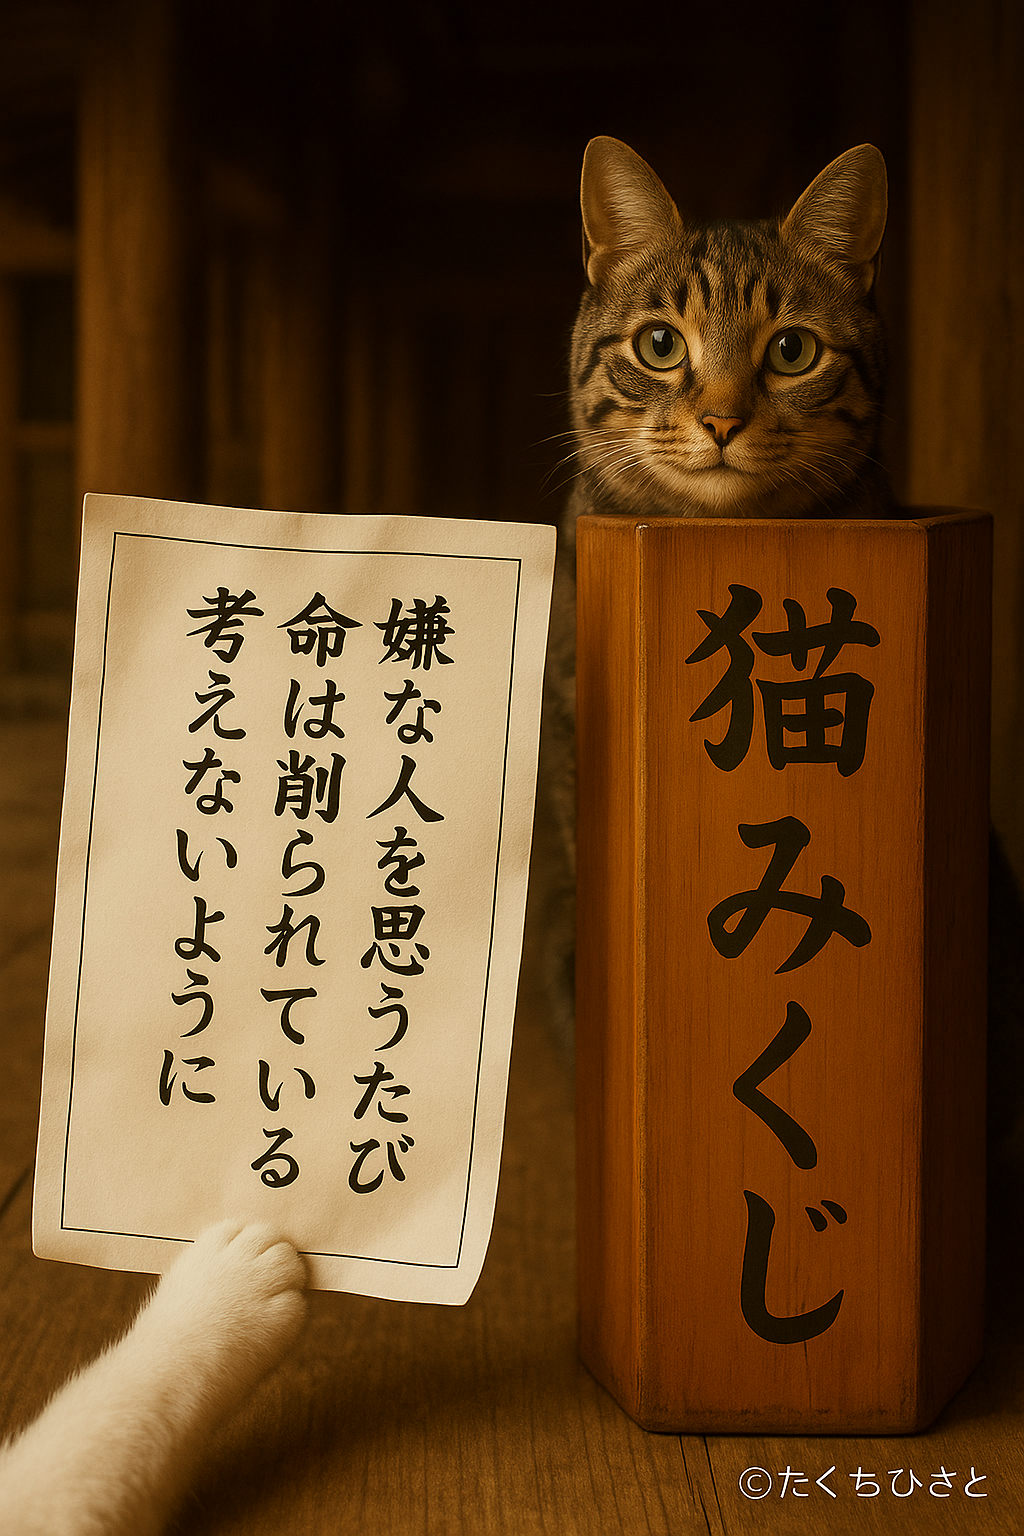 嫌な人を思うたび
命は削られている
考えないように
猫みくじ
©たくちひさと